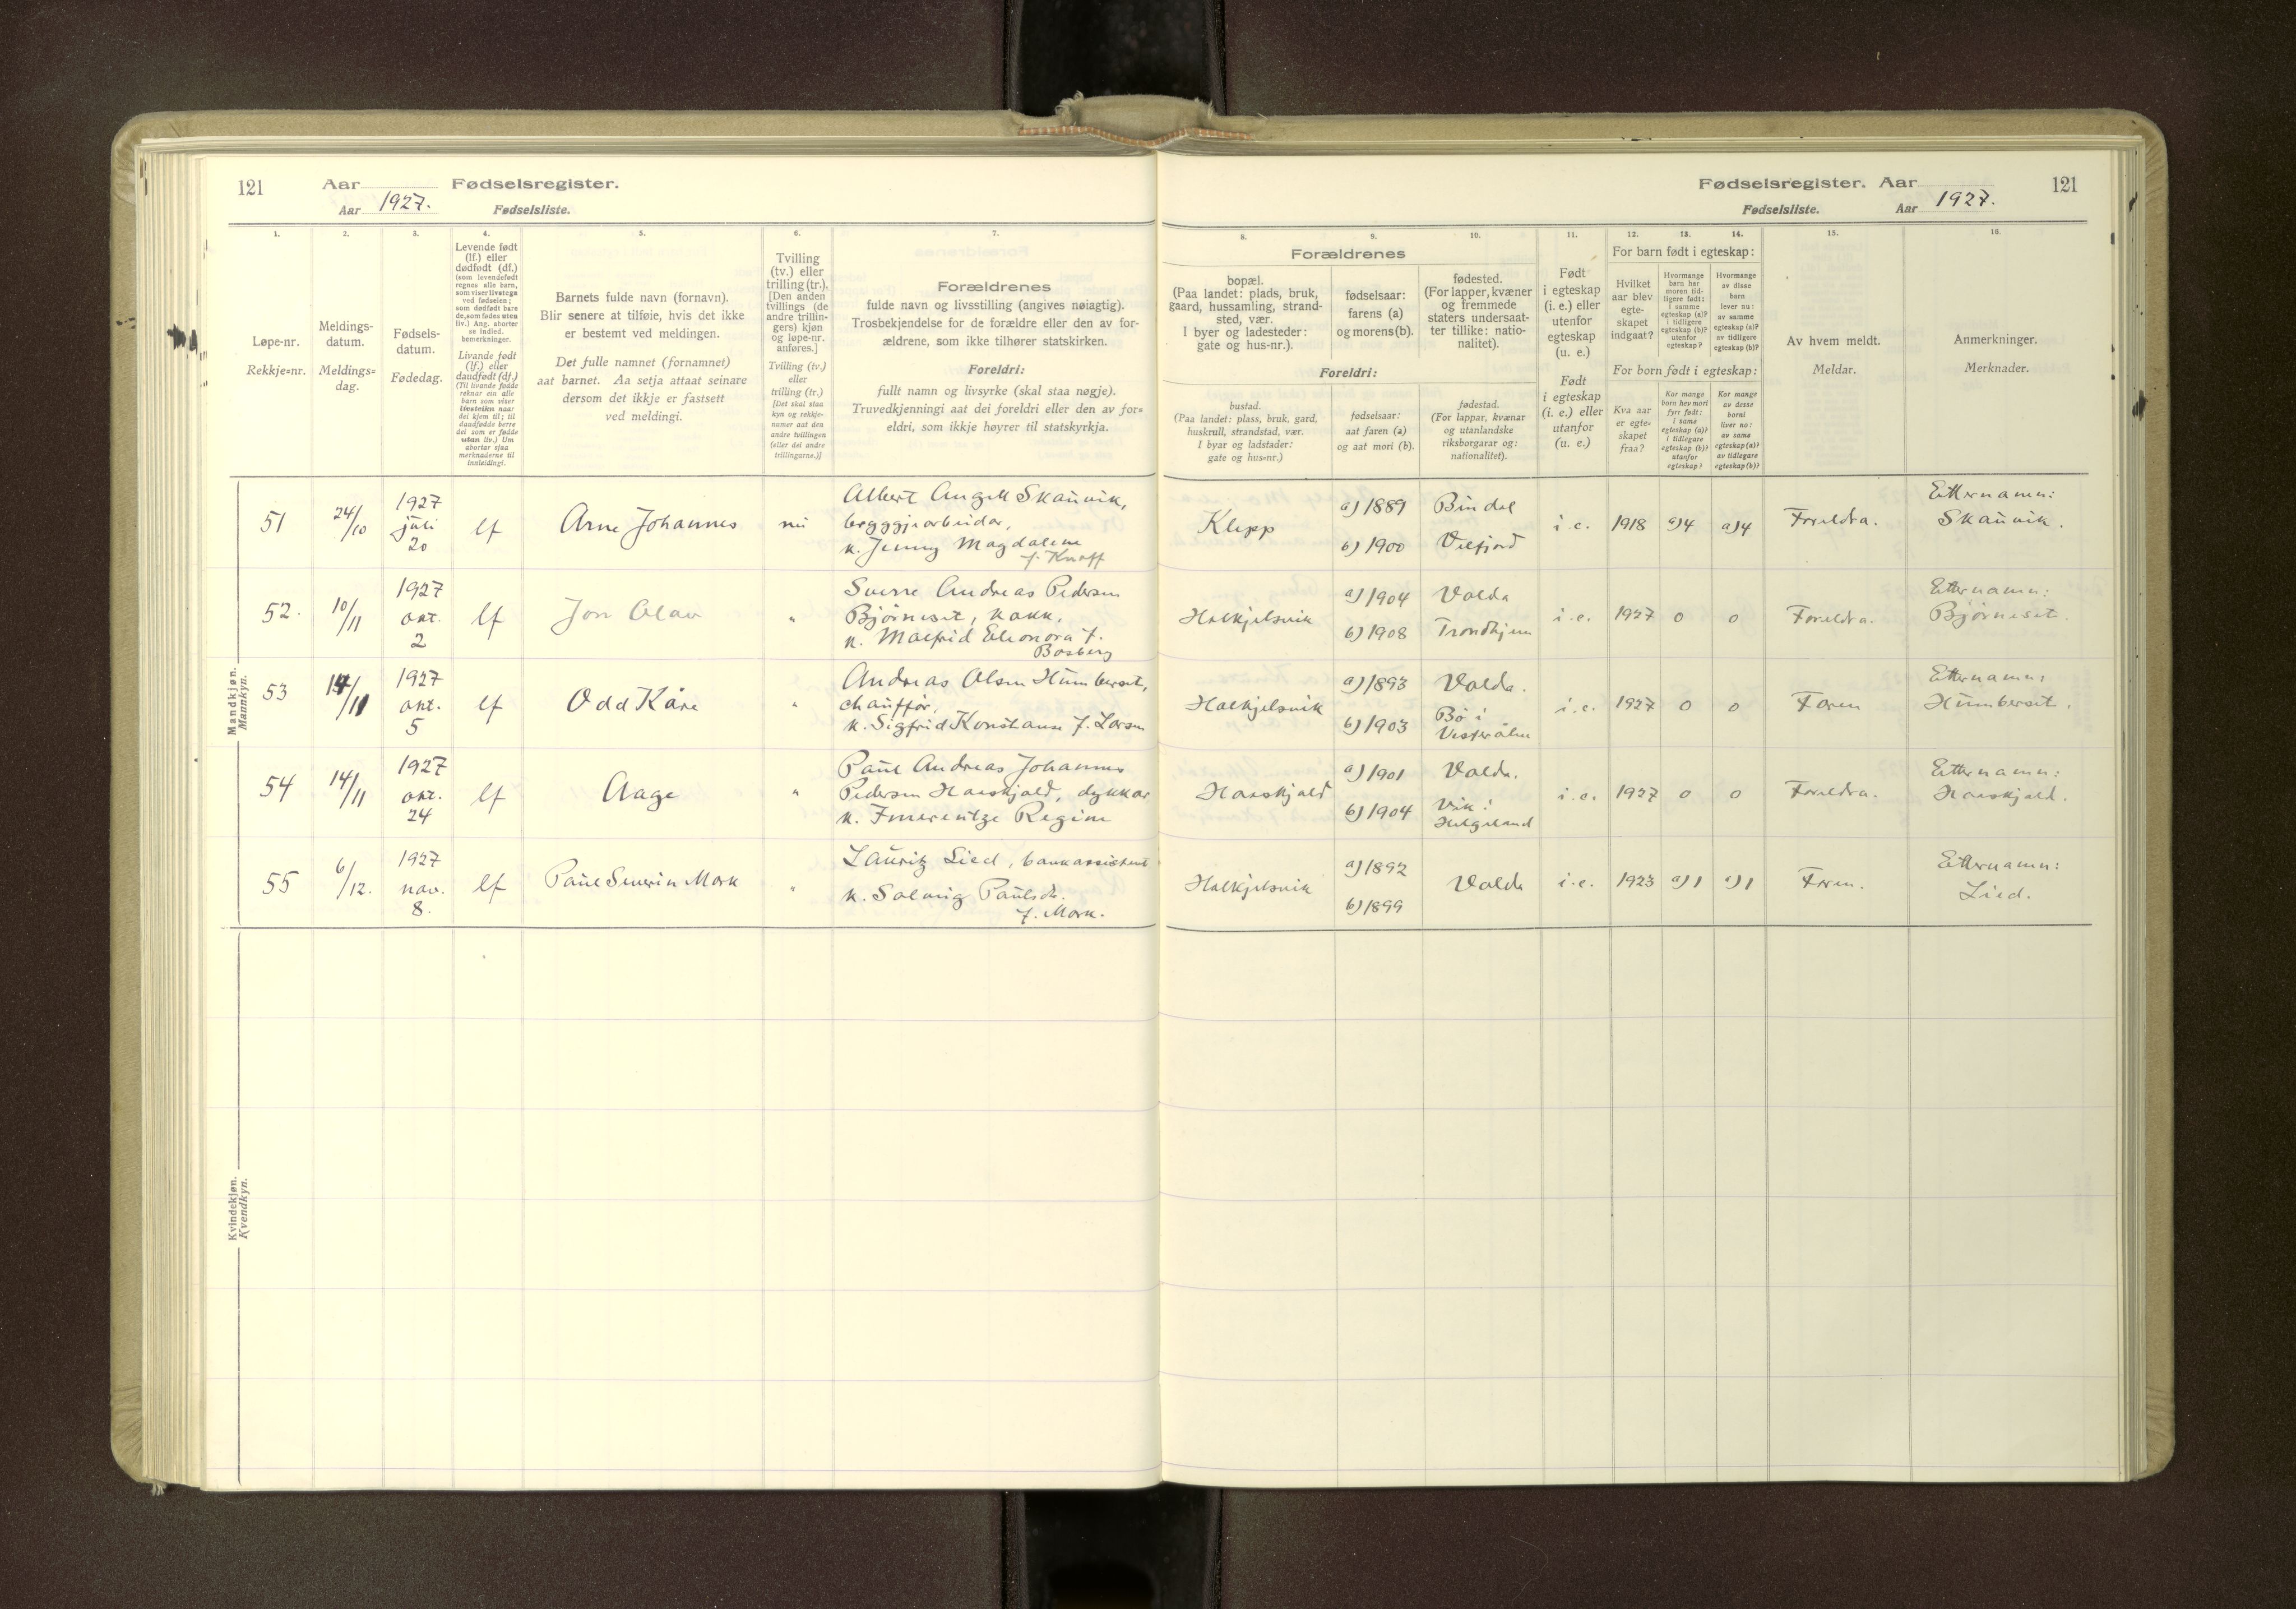 121 Aar Fødselsregister.
Aar 1927. Fødselsliste.
Fødselsregister. Aar 121
Fødselsliste. Aar 1927.
1. 2. 3. 4. 5. 6. 7.
Løpe-nr.
Rekkje=nr.
Meldings-
datum.
Meldings=
dag.
Fødsels-
datum.
Fødedag.
Levende født
(lf.) eller
dødfødt (df.)
(som levendefødt
regnes alle barn,
som viser livstegn
ved fødselen;
som dødfødt bare
de, som fødes uten
liv.) Ang. aborter
se indled.
bemerkninger.
Livande født
(lf.) eller
daudfødt (df.)
(Til livande fødde
reknar ein alle
barn som viter
livsteikn naar
dei kjem til; til
daudfødde berre
dei som er fødde
utan liv.) Um
abortar sjaa
merknaderne til
innleidingi.
Barnets fulde navn (fornavn).
Blir senere at tilføie, hvis det ikke
er bestemt ved meldingen.
Det fulle namnet (fornamnet)
aat barnet. Aa setja attaat seinare
dersom det ikkje er fastsett
ved meldingi.
Tvilling
(tv.) eller
trilling (tr.).
[Den anden
tvillings (de
andre trillin-
gers) kjøn
og løpe-nr.
anføres.]
Tvilling (tv.)
eller
trilling (tr.)
[Det skal staa
kyn og rekkje-
numer aat den
andre tvillingen
(eller dei andre
trillingarne.)]
Forældrenes
fulde navn og livsstilling (angives nøiagtig).
Trosbekjendelse for de forældre eller den av for-
ældrene, som ikke tilhører statskirken.
Foreldri:
fullt namn og livsyrke (skal staa nøgje).
Truvedkjenningi aat dei foreldri eller den av for=
eldri, som ikkje høyrer til statskyrkja.
8. 9. 10. 11. 12. 13. 14. 15. 16.
Forældrenes
bopæl.
(Paa landet: plads, bruk,
gaard, hussamling, strand-
sted, vær.
I byer og ladesteder:
gate og hus-nr.).
fødselsaar:
farens (a)
og morens (b).
fødested.
(For lapper, kvæner
og fremmede
staters undersaat-
ter tillike: natio-
nalitet).
Foreldri:
bustad.
(Paa landet: plass, bruk, gard,
huskrull, strandstad, vær.
I byar og ladstader:
gate og hus=nr.)
fødselsaar:
aat faren (a)
og aat mori (b).
fødestad.
(For lappar, kvænar
og utanlandske
riksborgarar og:
nationalitet).
Født
i egteskap
(i. e.) eller
utenfor
egteskap
(u. e.)
Født
i egteskap
(i. e.) eller
utanfor
(u. e.)
For barn født i egteskap:
Hvilket
aar blev
egte-
skapet
indgaat?
Hvormange
barn har
moren tid-
ligere født:
i samme
egteskap (a)?
i tidligere
egteskap (b)?
utenfor
egteskap?
Hvormange
av disse
barn
lever nu:
av samme
egteskap (a)?
av tidligere
egteskap (b)?
For born født i egteskap:
Kva aar
er egte=
skapet
fraa?
Kor mange
born hev mori
fyrr født:
i same
egteskap (a)?
i tidlegare
egteskap (b)?
utanfor
egteskap?
Kor mange
av desse
borni
liver no:
av same
egteskap (a)?
av tidlegare
egteskap (b)?
Av hvem meldt.
Meldar.
Anmerkninger.
Merknader.
Mandkjøn.
Mannkyn.
51 24/10 1927 juli 20 lf Arne Johannes nei
Albert Angell Skauvik,
byggjearbeidar,
k. Jenny Magdalene
f. Knoff
Klepp a) 1889 Bindal
b) 1900 Velfjord
i.e. 1918 a)4 a)4 Foreldra.
Etternamn:
Skauvik.
52. 10/11 1927 okt. 2 lf Jon Olav "
Sverre Andreas Pedersen
Bjørneset, kokk,
k. Malfrid Eleonora f.
Bosberg
Halkjelsvik a) 1904 Volda
b) 1908 Trondhjem
i.e. 1927 0 0 Foreldra.
Etternamn:
Bjørneset.
53 14/11 1927 okt. 5 lf Odd Kåre "
Andreas Olsen Humberset,
chauffør,
k. Sigfrid Konstanse f. Larsen
Halkjelsvik a) 1893 Volda.
b) 1903 Bø i
Vesterålen
i.e. 1927 0 0 Faren
Etternamn:
Humberset.
54 14/11 1927 okt. 24 lf Aage "
Paul Andreas Johannes
Pedersen Haaskjold, dykkar
k. Emerentze Regine
Haaskjold a) 1901 Volda.
b) 1904 Vik i
Helgeland
i.e. 1927 0 0 Foreldra.
Etternamn:
Haaskjold.
55 6/12. 1927 nov. 8. lf Paul Severin Mork "
Lauritz Lied, bankassistent
k. Solveig Paulsd.
f. Mork.
Halkjelsvik a) 1892
b) 1899 Volda
i.e. 1923 a)1 a)1 Faren.
Etternamn:
Lied.
Kvindekjøn.
Kvendkyn.